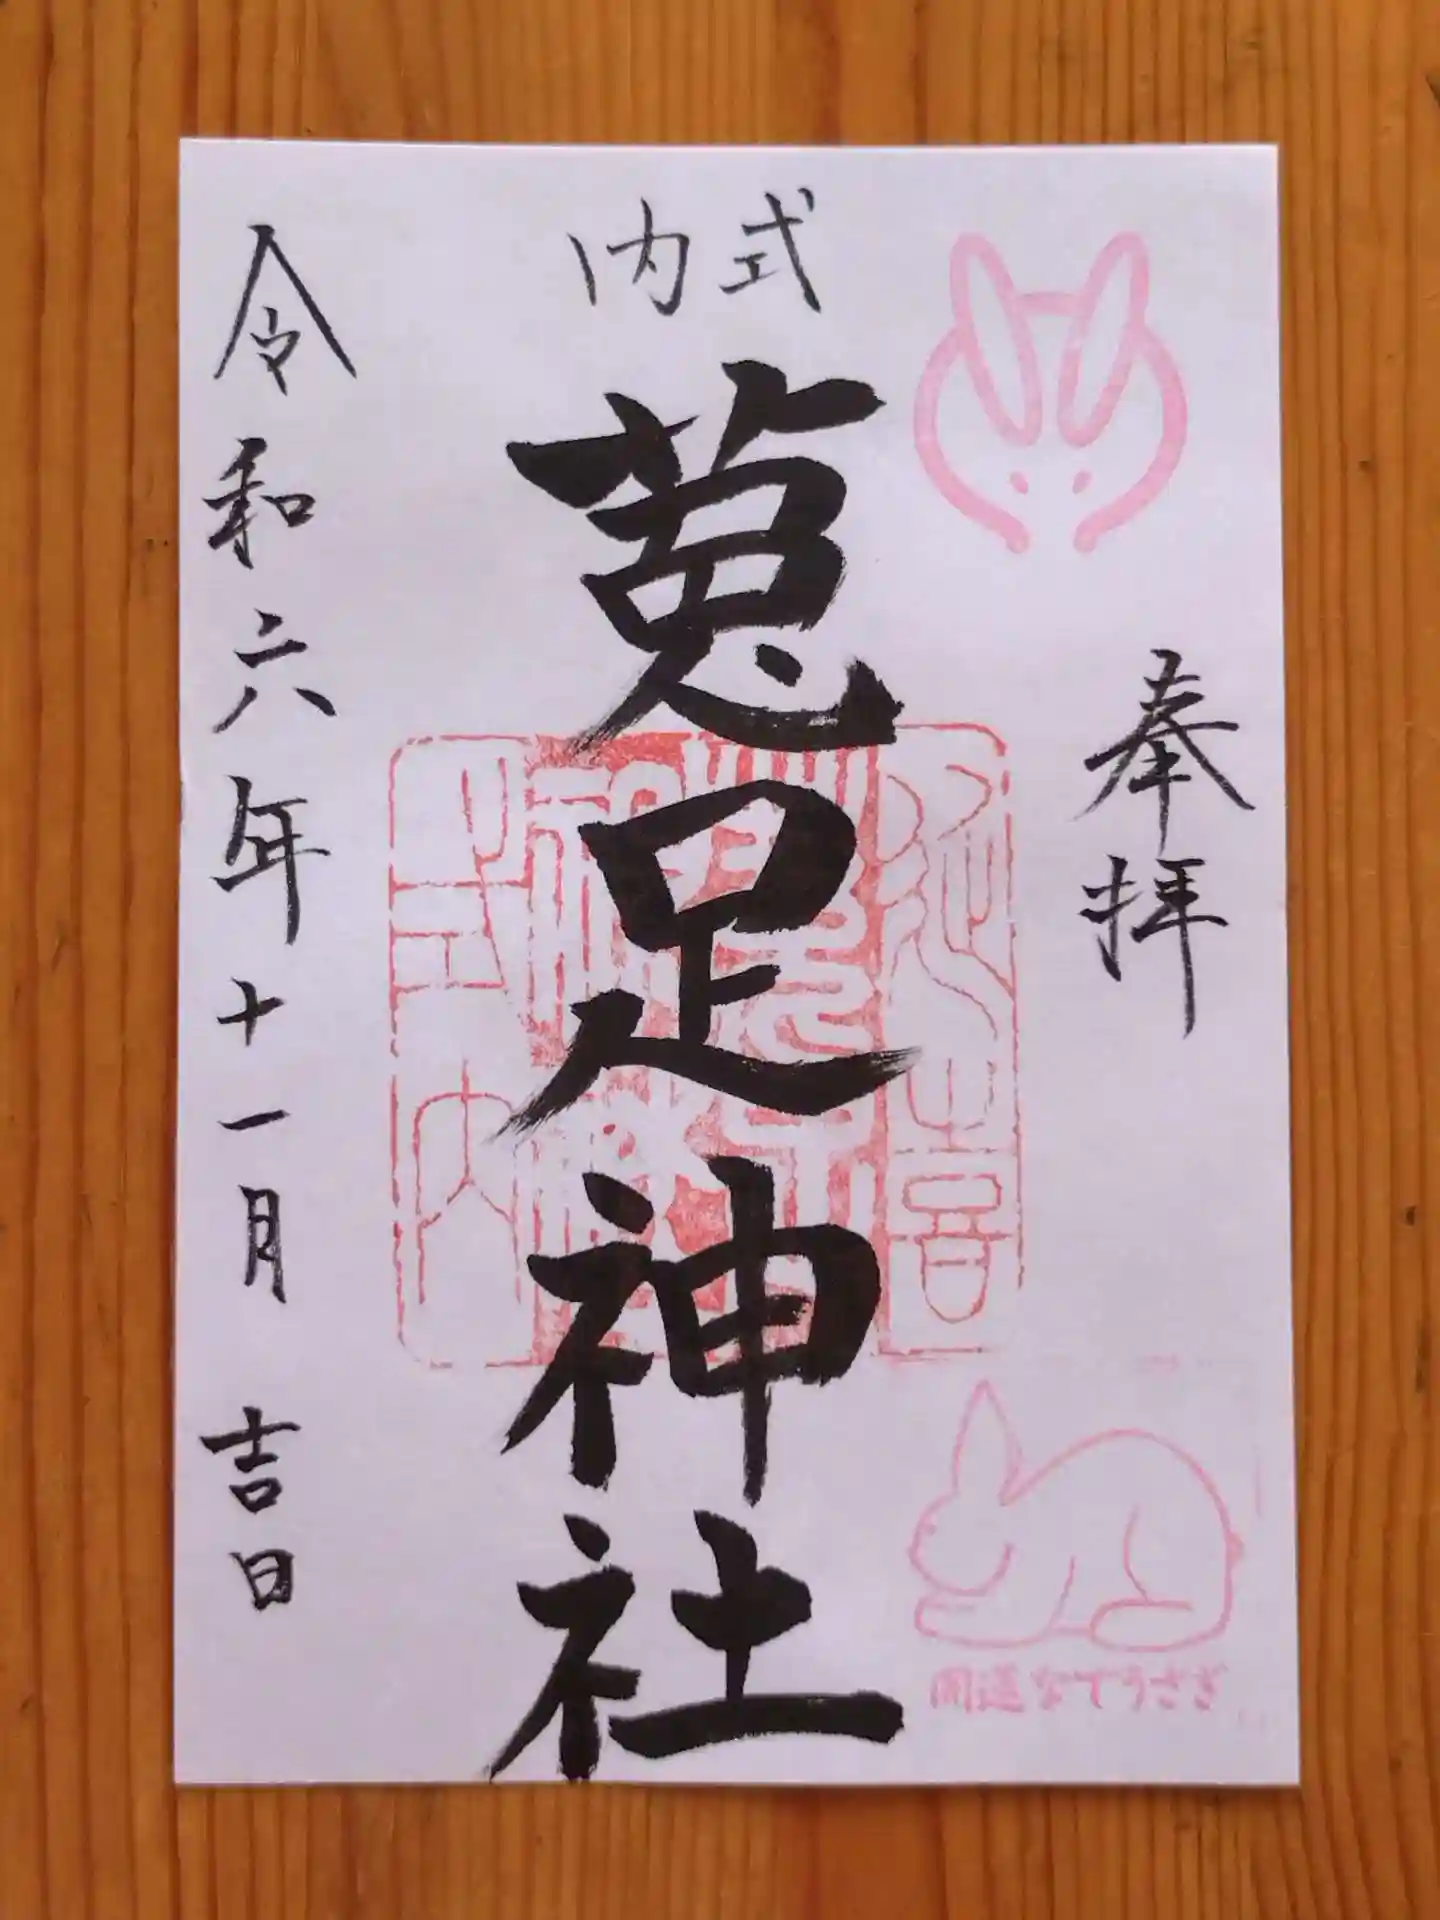 奉拝
式内
菟足神社
令和六年十一月 吉日
延喜
式内
開運なでうさぎ